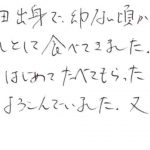 田出身で、幼ない頃か
しとして食べてきました.
はじめてたべてもらった
よろこんでいました.又